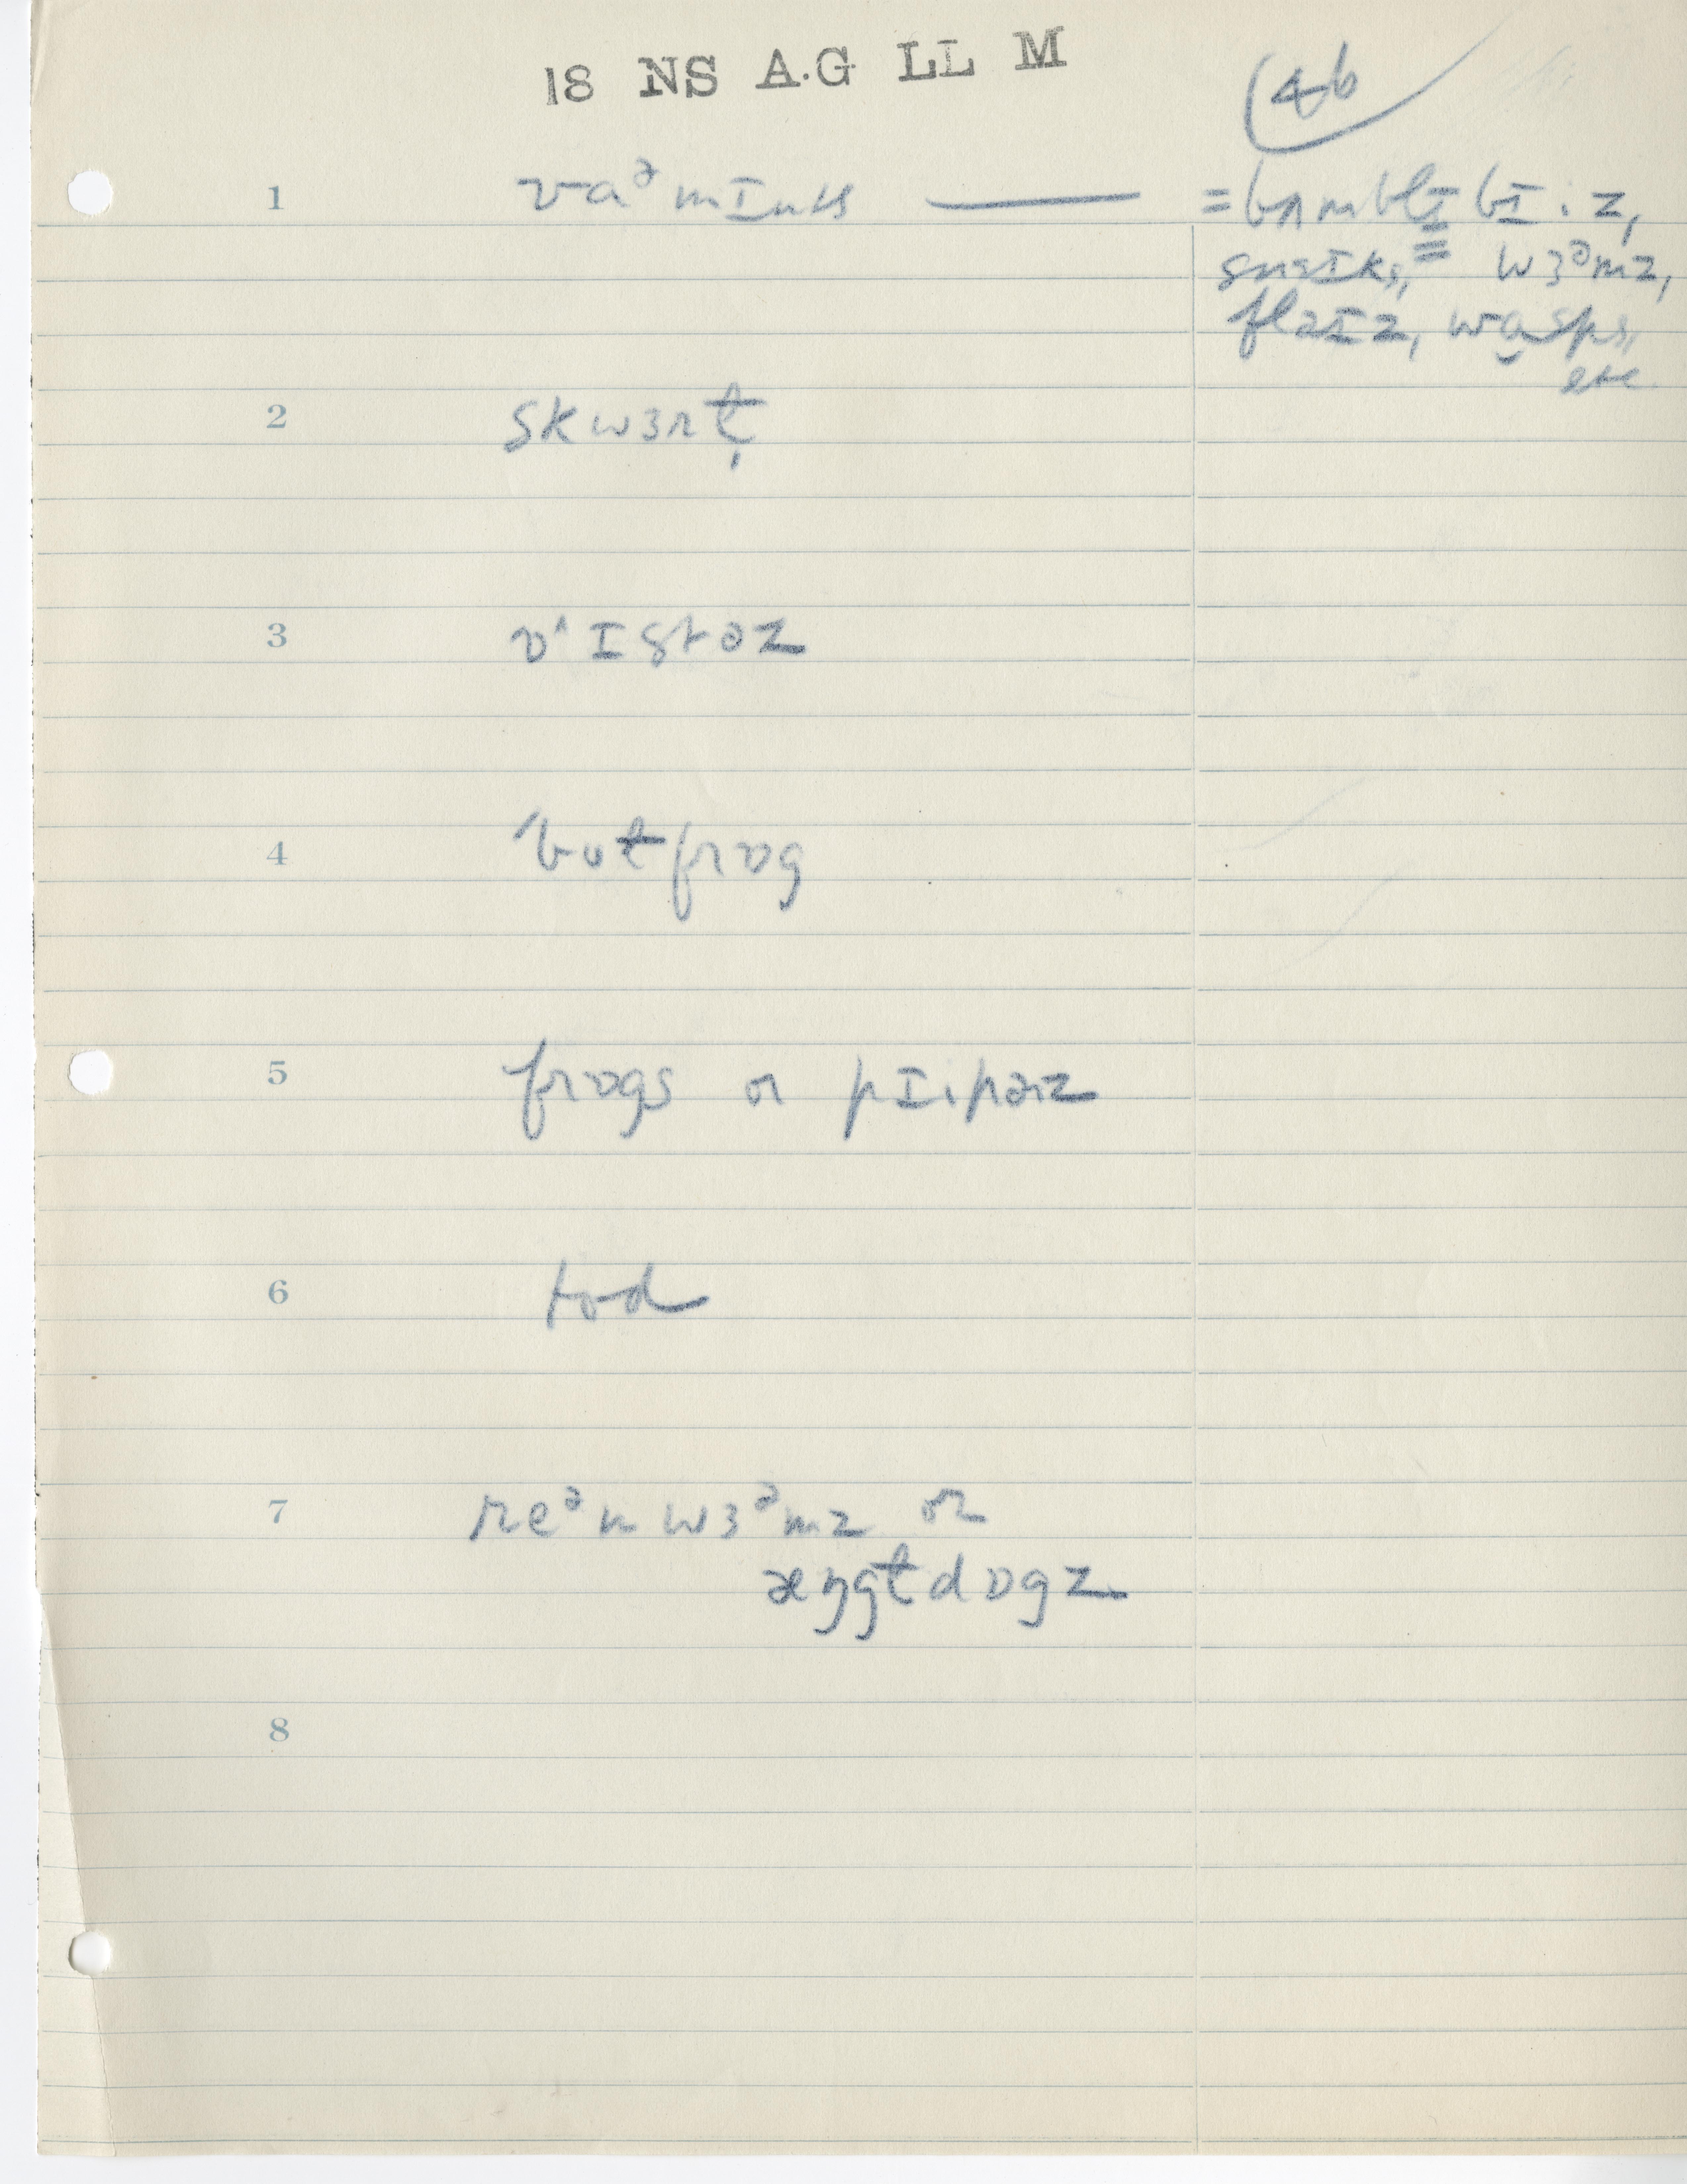 18 NS A.G LL M
46
1 vaᵊmɪnts = bʌmbɫ̩ bɪ:z,
sneɪks, wɜᵊmz,
flaɪz, wɑsps,
etc
2 skwɜrɫ̩
3 vˈɪstəz
4 ˈbʊɫfrɒg
5 frɒgs or pɪ:pərz
6 tod
7 reᵊn wɜᵊmz or
æŋgɫdɒgz
8